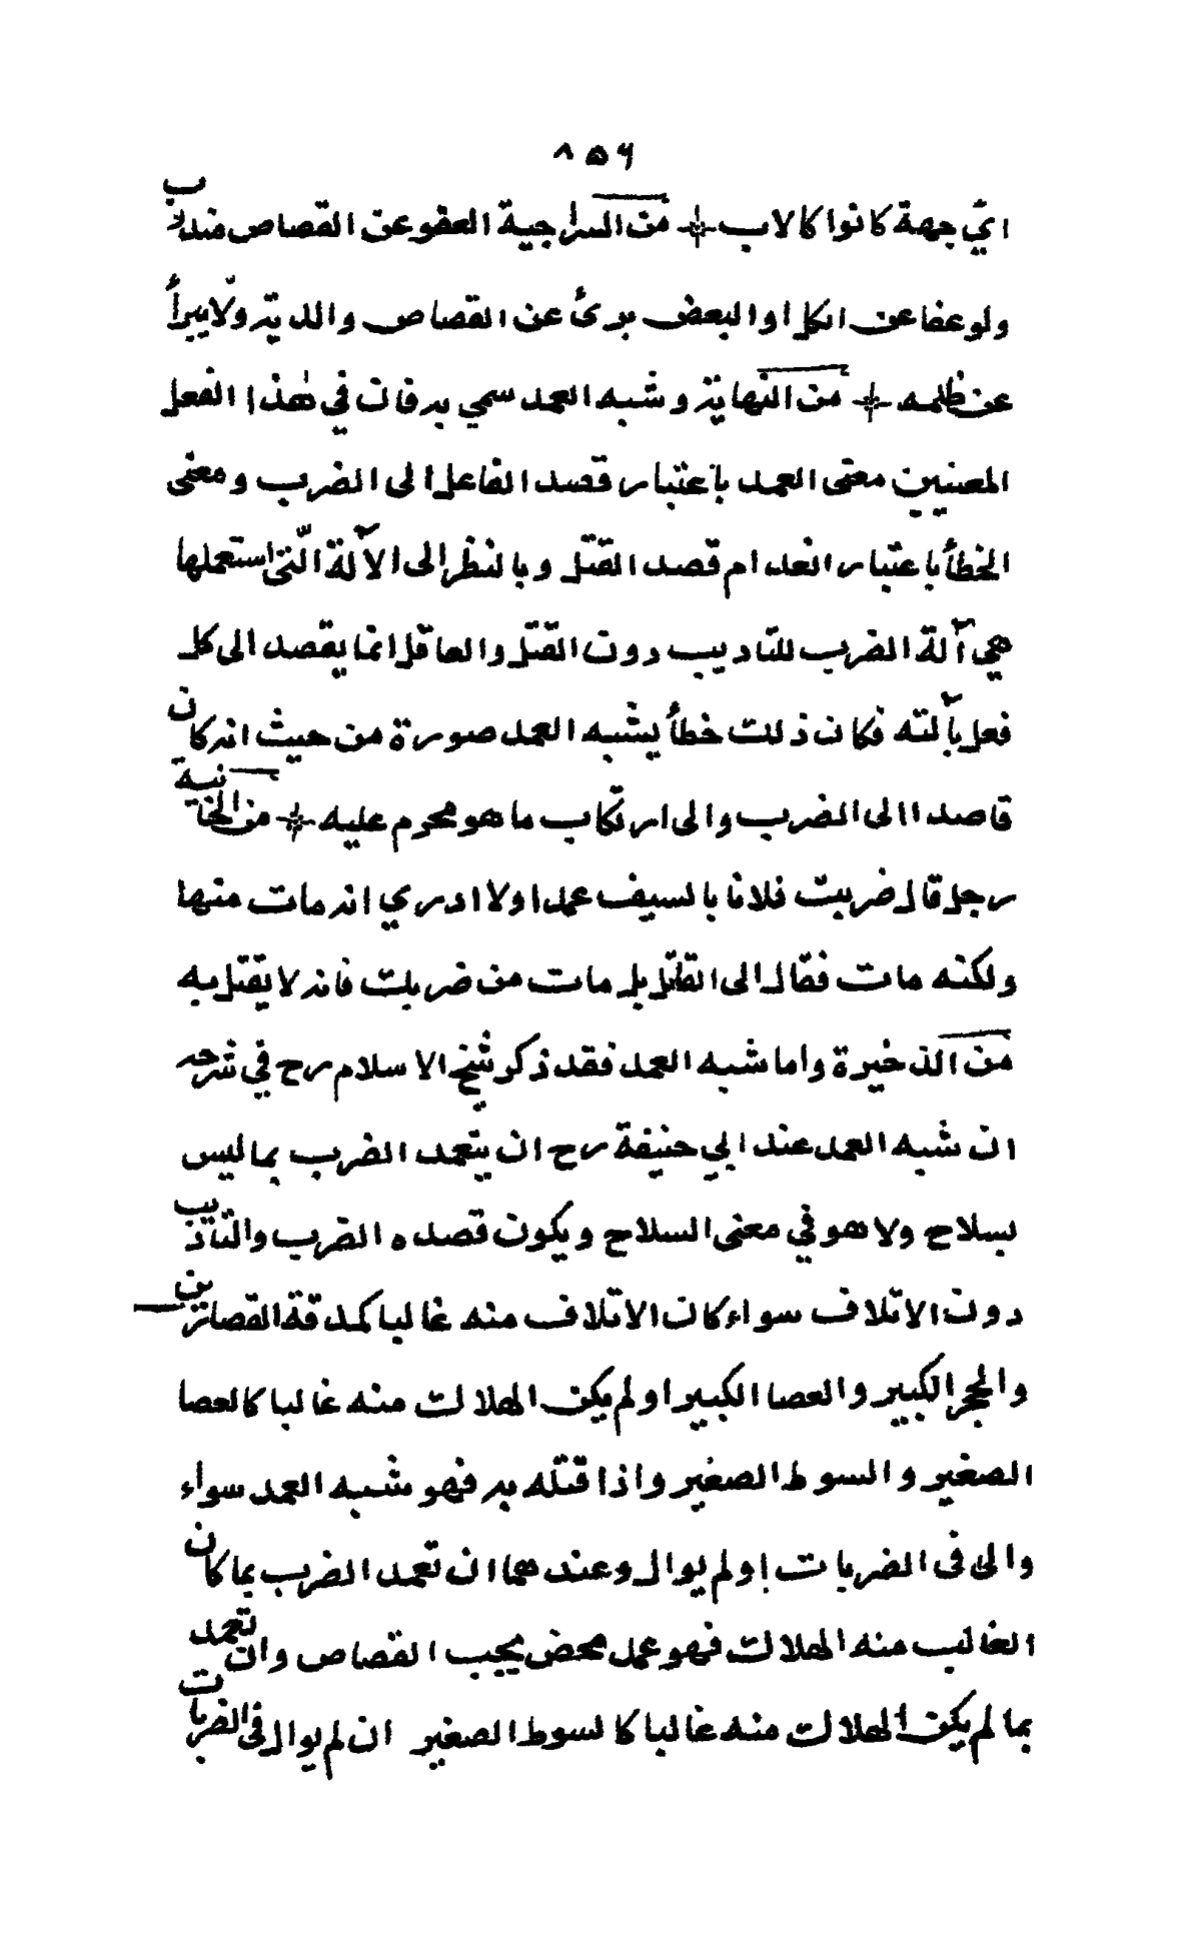 ٨٥٦
ايّ جهة كانوا كالاب من السراجية العفو عن القصاص مندوب
ولو عفا عن الكل او البعض برئ عن القصاص والدية ولا يبرأ
عن ظلمه من النهاية وشبه العمد سمي به فان في هذا الفعل
المعنيين معنى العمد باعتبار قصد الفاعل الى الضرب ومعنى
الخطأ باعتبار انعدام قصد القتل وبالنظر الى الآلة الّتي استعملها
هي آلة الضرب للتاديب دون القتل والعاقل انما يقصد الى كل
فعل بآلته فكان ذلك خطأ يشبه العمد صورة من حيث انه كان
قاصدا الى الضرب والى ارتكاب ما هو محرم عليه من الخانية
رجل قال ضربت فلانا بالسيف عمدا ولا ادري انه مات منها
ولكنه مات فقال الى القاتل بل مات من ضربك فانه لا يقتل به
من الذخيرة واما شبه العمد فقد ذكر شيخ الاسلام رح في شرحه
ان شبه العمد عند ابي حنيفة رح ان يتعمد الضرب بما ليس
بسلاح ولا هو في معنى السلاح ويكون قصده الضرب والتاديب
دون الاتلاف سواء كان الاتلاف منه غالبا كمدقة القصارين
والحجر الكبير والعصا الكبير او لم يكن الهلاك منه غالبا كالعصا
الصغير والسوط الصغير واذا قتله به فهو شبه العمد سواء
والى فى الضربات او لم يوال وعندهما ان تعمد الضرب بما كان
الغالب منه الهلاك فهو عمد محض يجب القصاص وان تعمد
بما لم يكن الهلاك منه غالبا كالسوط الصغير ان لم يوال فى الضربات